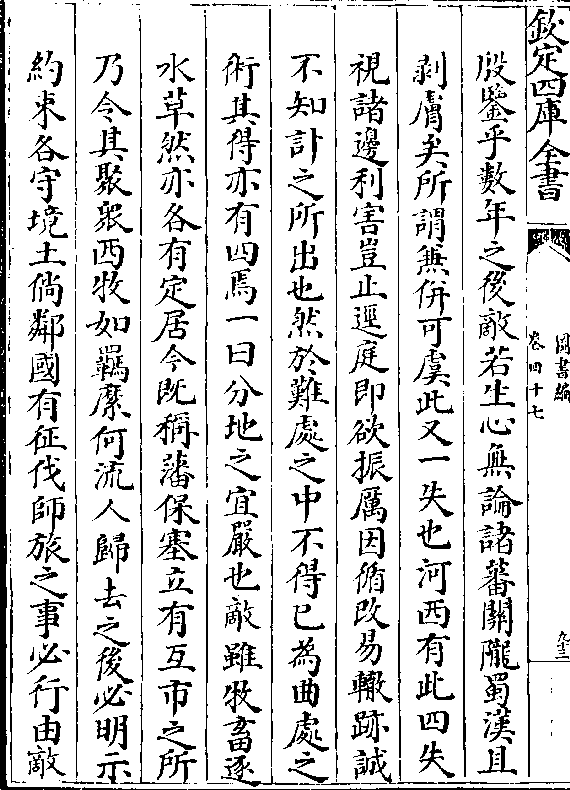 欽定四庫全書
圖書編
卷四十七
九三
殷鑒乎數年之後敵若生心無論諸蕃關隴蜀漢且
剥膚矣所謂無併可虞此又一失也河西有此四失
視諸邊利害豈止逕庭即欲振厲因循改易轍跡誠
不知計之所出也然於難處之中不得已為曲處之
術其得亦有四焉一曰分地之宜嚴也敵雖牧畜逐
水草然亦各有定居今既稱藩保塞立有互市之所
乃令其聚衆西牧如羈縻何流人歸去之後必明示
約束各守境土倘鄰國有征伐師旅之事必行由敵